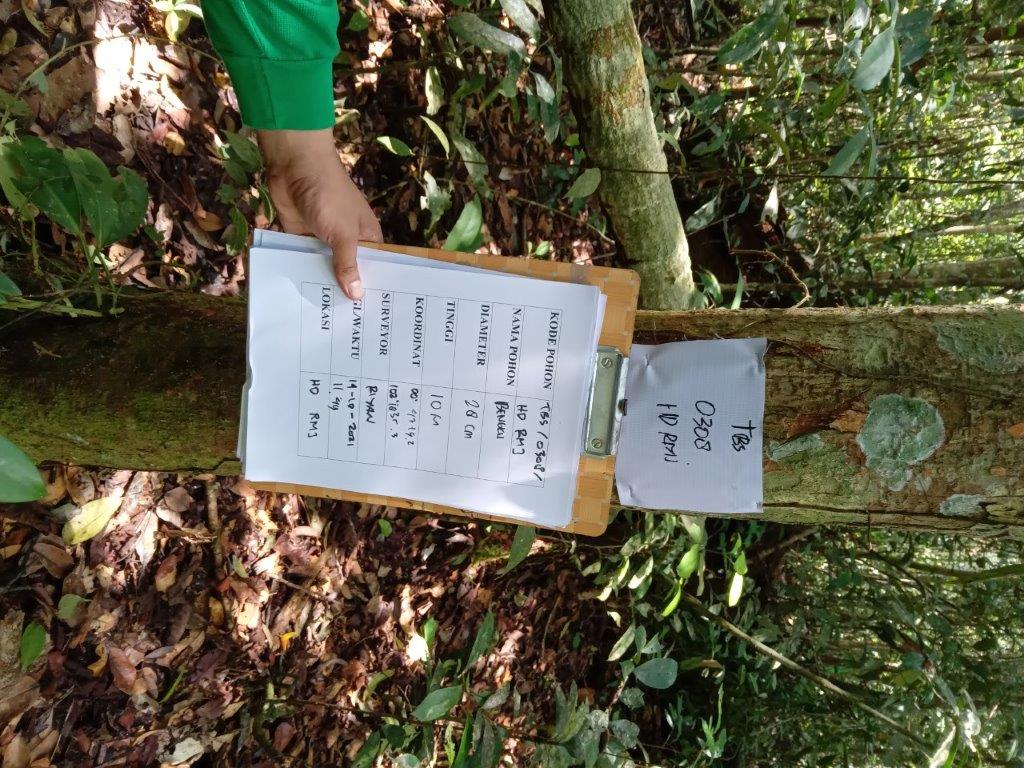 TBS
0308
HD RMJ
KODE POHON TBS / 0308 /
HD RMJ
NAMA POHON BENGKU
DIAMETER 28 cm
TINGGI 10 M
KOORDINAT
SURVEYOR RIYAN
GL/WAKTU 19-10-2021
11
LOKASI HD RMJ